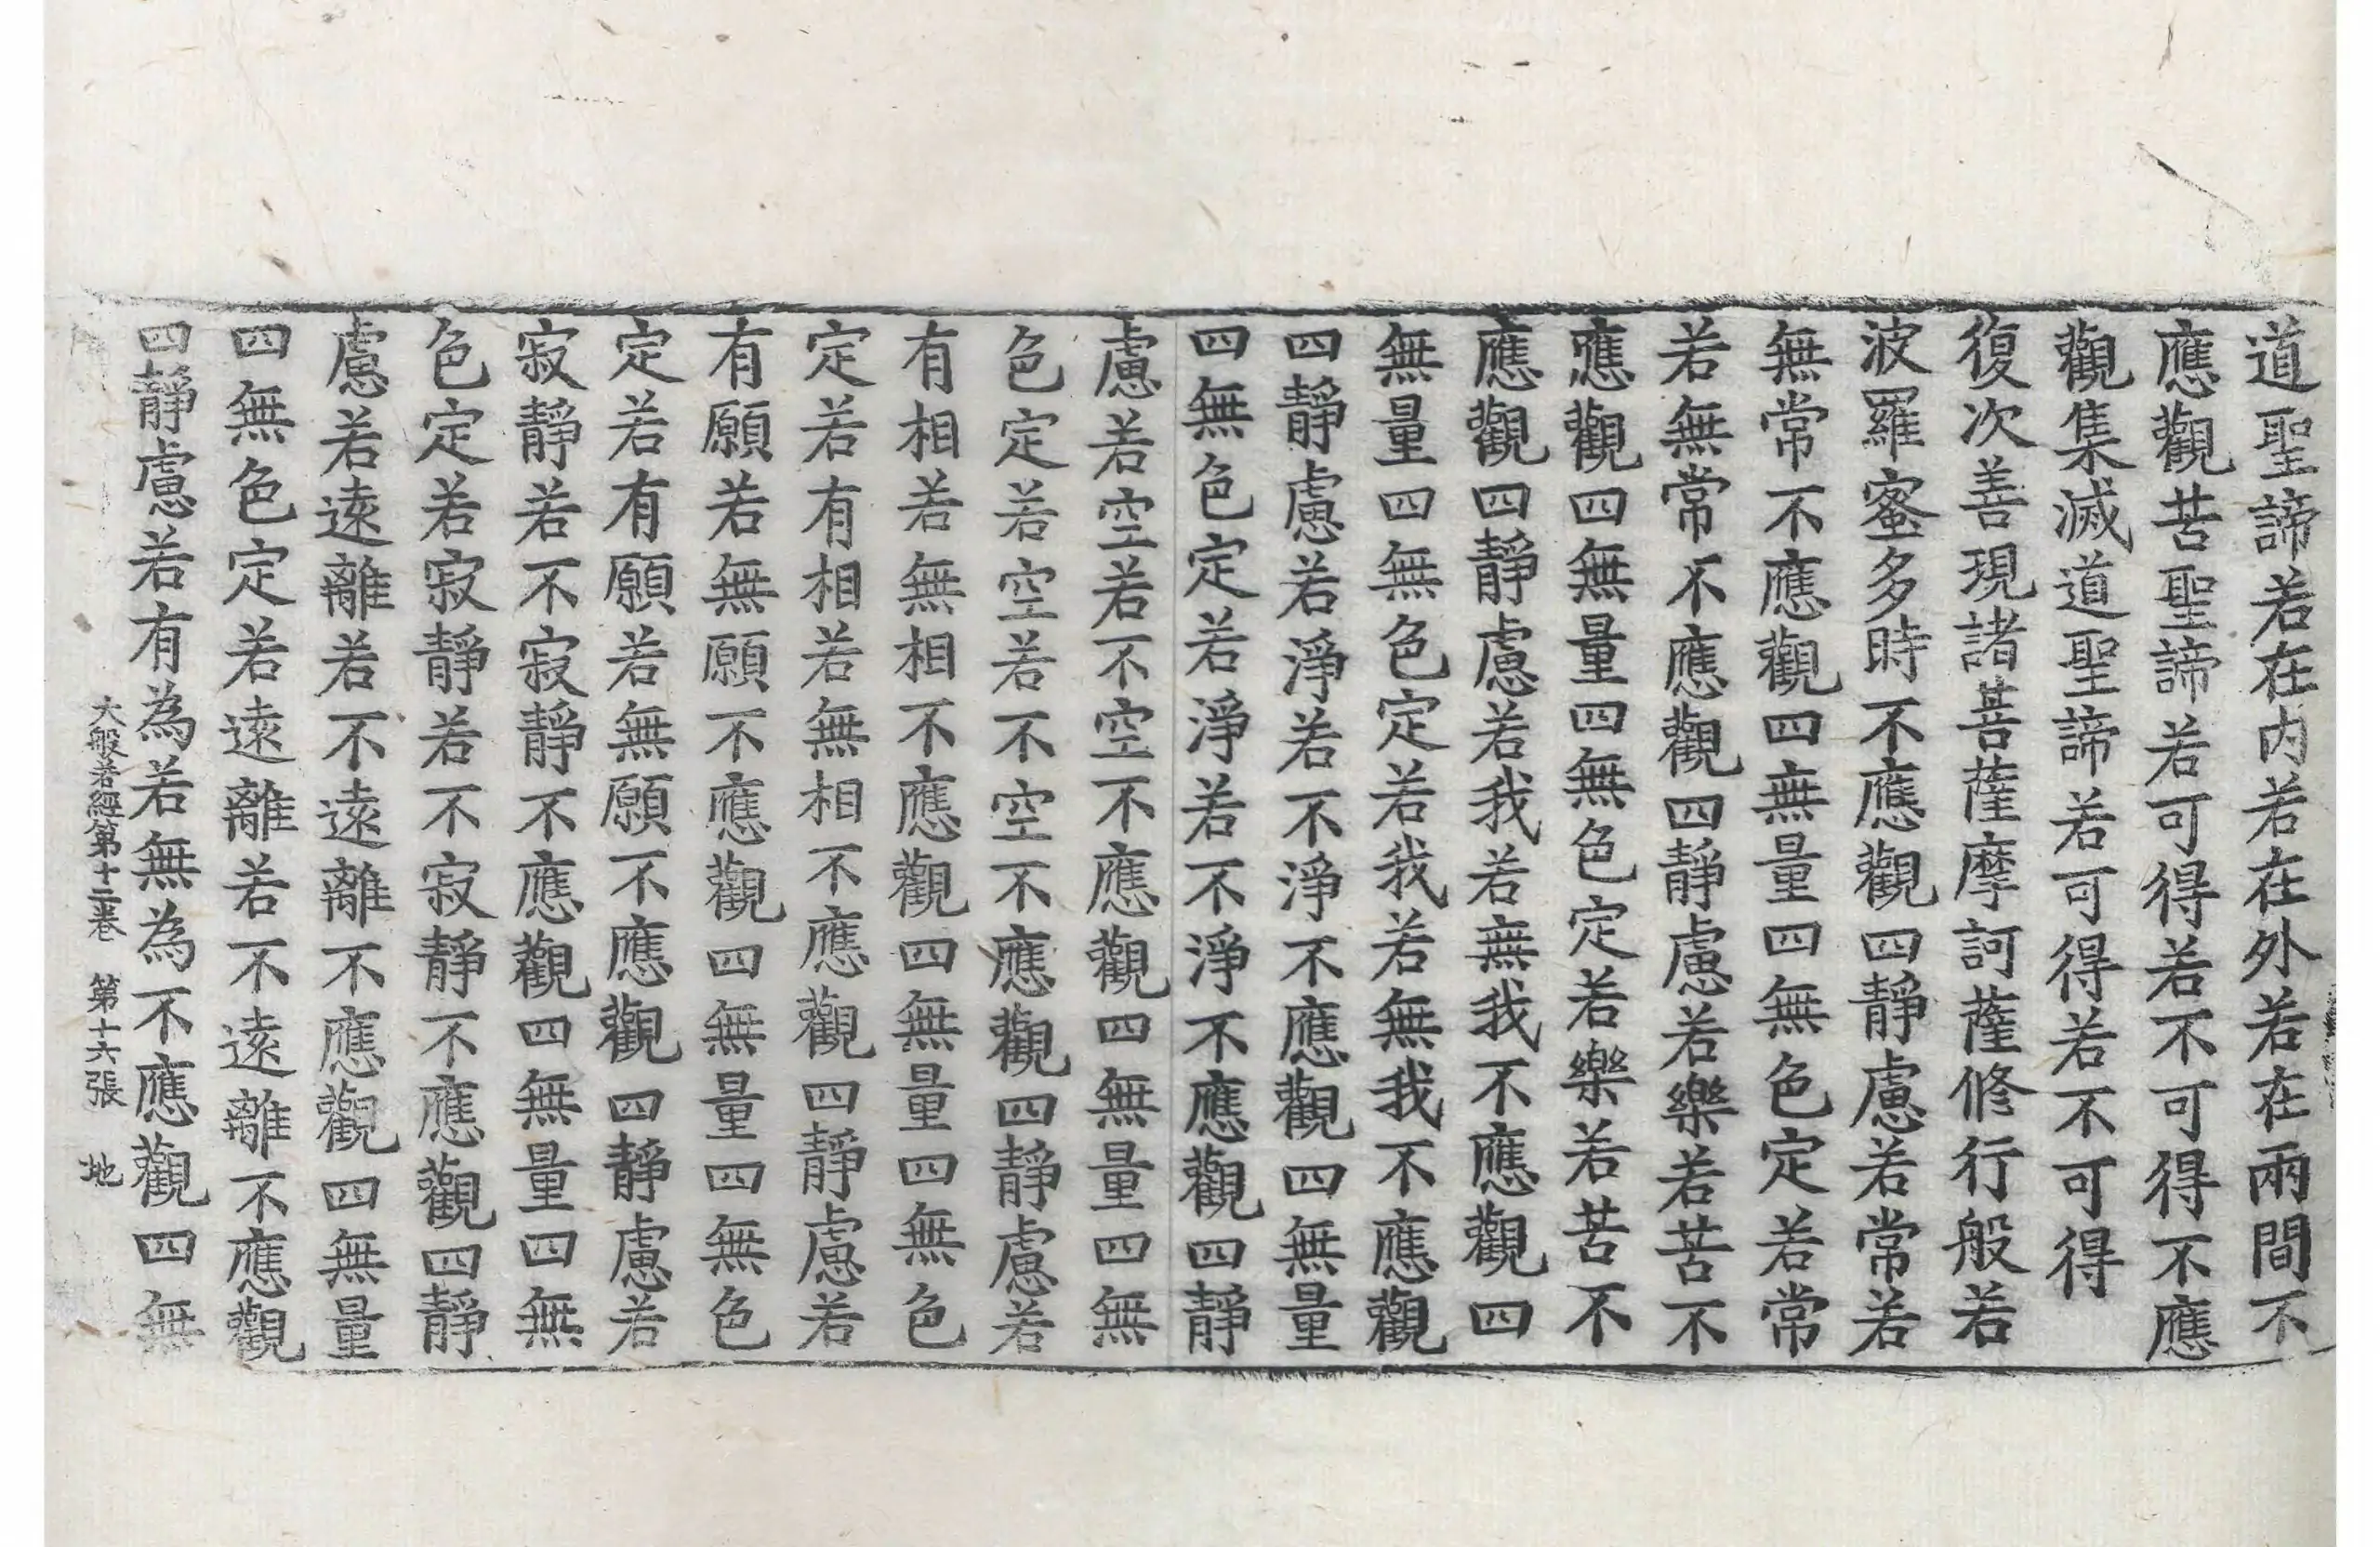 道聖諦若在内若在外若在兩間不
應觀苦聖諦若可得若不可得不應
觀集滅道聖諦若可得若不可得
復次善現諸菩薩摩訶薩修行般若
波羅蜜多時不應觀四靜慮若常若
無常不應觀四無量四無色定若常
若無常不應觀四靜慮若樂若苦不
應觀四無量四無色定若樂若苦不
應觀四靜慮若我若無我不應觀四
無量四無色定若我若無我不應觀
四靜慮若淨若不淨不應觀四無量
四無色定若淨若不淨不應觀四靜
慮若空若不空不應觀四無量四無
色定若空若不空不應觀四靜慮若
有相若無相不應觀四無量四無色
定若有相若無相不應觀四靜慮若
有願若無願不應觀四無量四無色
定若有願若無願不應觀四靜慮若
寂靜若不寂靜不應觀四無量四無
色定若寂靜若不寂靜不應觀四靜
慮若遠離若不遠離不應觀四無量
四無色定若遠離若不遠離不應觀
四靜慮若有為若無為不應觀四無
大般若經第十二卷 第十六張 地